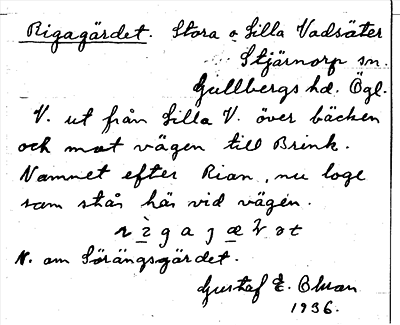 Rigagärdet. Stora o Lilla Vadsäter
Stjärnorp sn.
Gullbergs hd. Ögl.
V. ut från Lilla V. över bäcken
och mot vägen till Brink.
Namnet efter Rian, nu loge
som står här vid vägen.
N. om Sörängsgärdet.
Gustaf E. Ohman
1936.